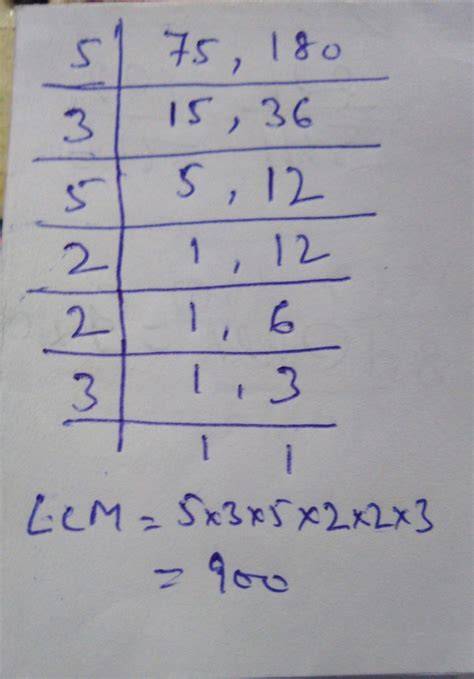 5 75, 180
3 15, 36
5 5, 12
2 1, 12
2 1, 6
3 1, 3
1 1
LCM = 5×3×5×2×2×3
= 900